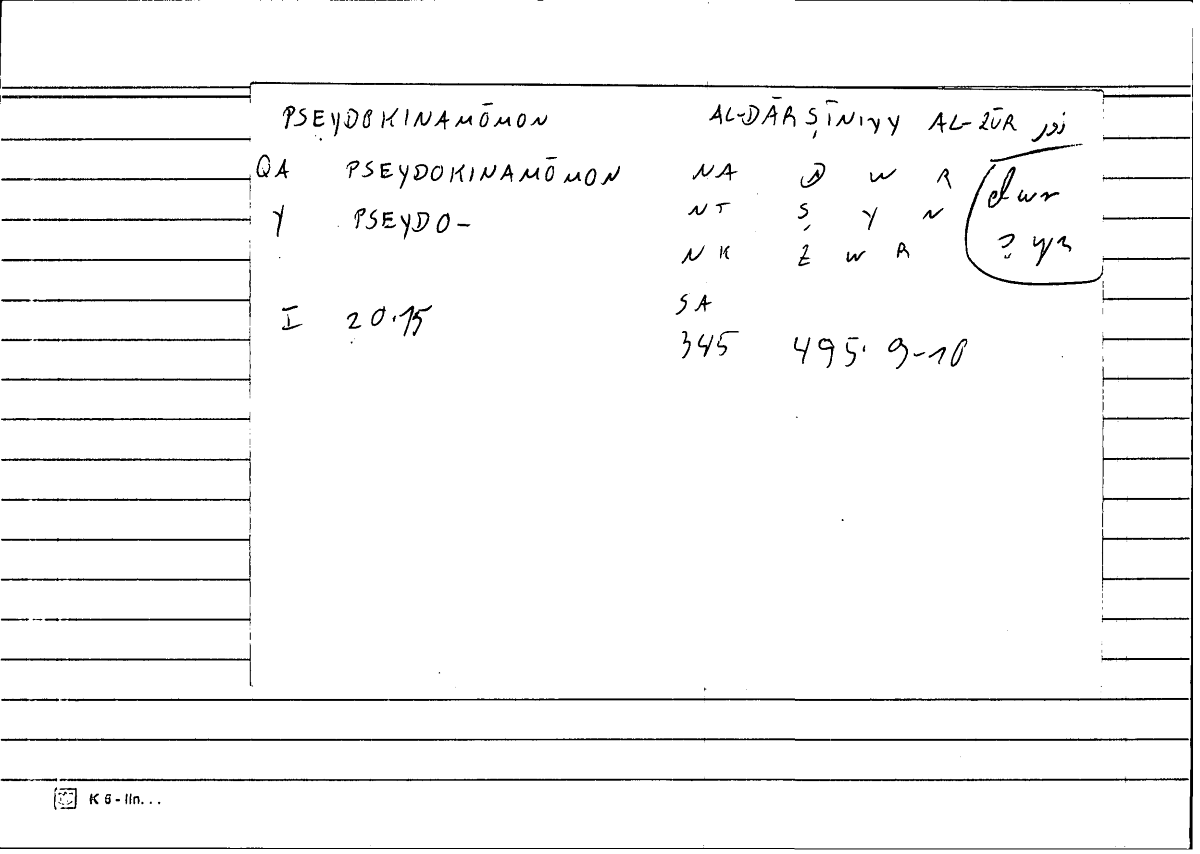 PSEYDOKINAMŌMON AL-DĀRṢĪNIYY AL-ZŪR زور
QA PSEYDOKINAMŌMON NA D W R
Y PSEYDO- NT Ṣ Y N dwr
NK Z W R ṣyn
SA
I 20.15 345 495. 9-10
K 6 - lin...